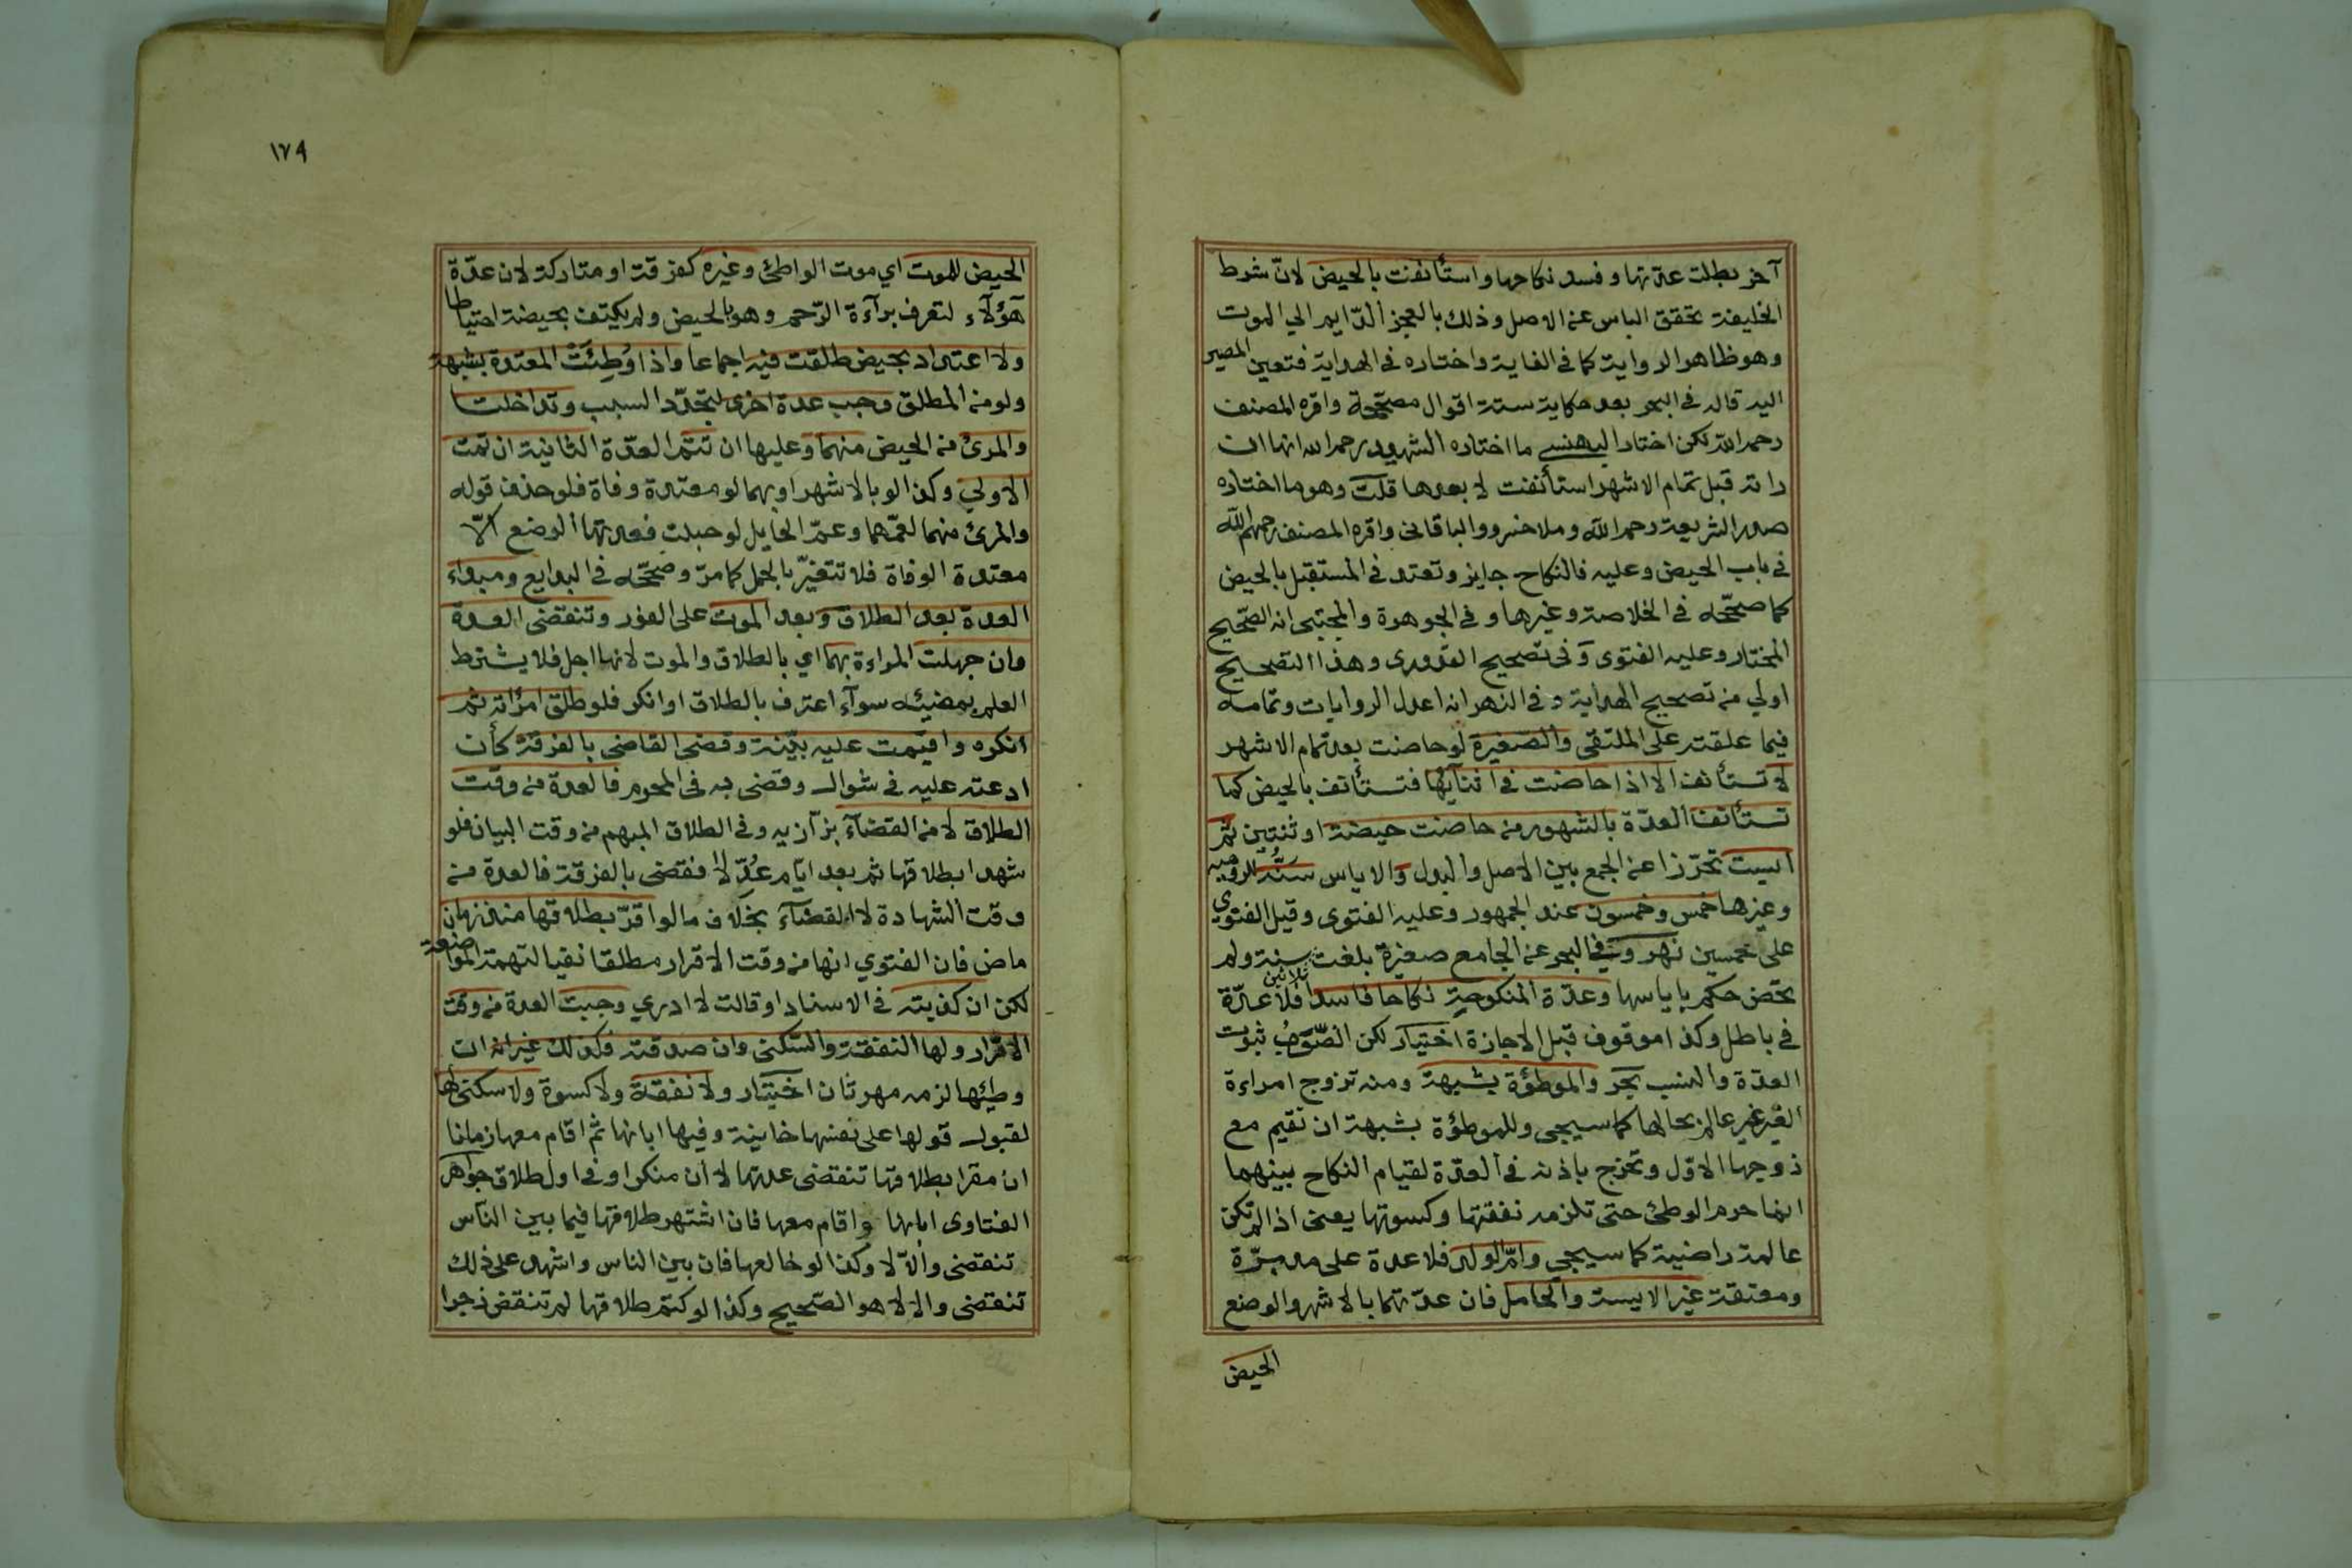 آخر بطلت عدتها وفسد نكاحها واستأنفت بالحيض لانّ شرط
الخليفة تحقق الياس عن الاصل وذلك بالعجز الدّايم الي الموت
وهو ظاهر الرواية كما في الغاية واختاره في الهداية فتعين المصير
اليه قاله في البحر بعد حكاية ستة اقوال مصحّحة واقره المصنف
رحمه الله لكن اختار البهنسي ما اختاره الشهيد رحمه الله انها ان
راته قبل تمام الاشهر استأنفت لا بعدها قلت وهو ما اختاره
صدر الشريعة رحمه الله وملا خسرو والباقاني واقره المصنف رحمهم الله
في باب الحيض وعليه فالنكاح جايز وتعتد في المستقبل بالحيض
كما صحّحه في الخلاصة وغيرها وفي الجوهرة والمجتبى انه الصّحيح
المختار وعليه الفتوى وفي تصحيح القدوري وهذا التصحيح
اولي من تصحيح الهداية وفي النهر انه اعدل الروايات وتمامه
فيما علقته على الملتقى والصّغيرة لو حاضت بعد تمام الاشهر
لا تستأنف الا اذا حاضت في اثنآئها فتستأنف بالحيض كما
تستأنف العدّة بالشهور من حاضت حيضة او ثنتين ثم
ايست تحرّزا عن الجمع بين الاصل والبدل والاياس سنّه للروميه
وغيرها خمس وخمسون عند الجمهور وعليه الفتوى وقيل الفتوي
على خمسين نهر وفي البحر عن الجامع صغيرة بلغت ثلاثين سنة ولم
تحض حكم باياسها وعدّة المنكوحة نكاحا فاسدا فلا عدّة
في باطل وكذا موقوف قبل الاجازة اختيار لكن الصّوب ثبوت
العدّة والنسب بحر والموطؤة بشبهة ومنه تزوج امراءة
الغير غير عالم بحالها كما سيجي وللموطؤة بشبهة ان تقيم مع
زوجها الاوّل وتخرج باذنه في العدّة لقيام النكاح بينهما
انما حرم الوطئ حتى تلزمه نفقتها وكسوتها يعني اذا لم تكن
عالمة راضية كما سيجي وامّ الولد فلا عدة على مدبرّة
ومعتقة غير الايسة والحامل فان عدّتهما بالاشهر والوضع
الحيض
١٧٩
الحيض للموت اي موت الواطئ وغيره كفرقة او متاركة لان عدّة
هؤلآء لتعرف برآءة الرّحم وهو بالحيض ولم يكتف بحيضة احتياطا
ولا اعتداد بحيض طلقت فيه اجماعا واذا وُطِئَتْ المعتدة بشبهة
ولو من المطلق وجب عدة اخرى لتجدّد السبب وتداخلتا
والمرئ من الحيض منهما وعليها ان تتم العدّة الثانية ان تمت
الاولي وكذا لو بالاشهر او بهما لو معتدة وفاة فلو حذف قوله
والمرئ منهما لعمّهما وعمّ الحايل لو حبلت فعدتها الوضع الّا
معتدة الوفاة فلا تتغيّر بالحمل كما مرّ وصحّحه في البدايع ومبداء
العدة بعد الطلاق وبعد الموت على الفور وتنقضى العدة
وان جهلت المراءة بهما اي بالطلاق والموت لانها اجل فلا يشترط
العلم بمضيئه سوآء اعترف بالطلاق او انكر فلو طلق امرأته ثم
انكره واقيمت عليه بيّنة وقضى القاضي بالفرقة كأن
ادعته عليه في شوال وقضى به في المحرم فالعدة من وقت
الطلاق لا من القضآء بزّازيه وفي الطلاق المبهم من وقت البيان فلو
شهدا بطلاقها ثم بعد ايّام عُدّلا فقضى بالفرقة فالعدة من
وقت الشهادة لا القضآء بخلاف ما لو اقرّ بطلاقها منذ زمان
ماض فان الفتوي انها من وقت الاقرار مطلقا نفيا لتهمة المواضعة
لكن ان كذبته في الاسناد او قالت لا ادري وجبت العدة من وقت
الاقرار ولها النفقة والسّكنى وان صدقته فكذلك غير انه ان
وطئها لزمه مهر ثان اختيار ولا نفقة ولا كسوة ولا سكنى لها
لقبول قولها على نفسها خانية وفيها ابانها ثم اقام معها زمانا
ان مقرا بطلاقها تنقضى عدتها لا ان منكرا وفي اول طلاق جواهر
الفتاوى ابانها واقام معها فان اشتهر طلاقها فيما بين النّاس
تنقضى والّا لا وكذا لو خالعها فان بين الناس واشهد على ذلك
تنقضى والا لا هو الصّحيح وكذا لو كتم طلاقها لم تنقض زجرا